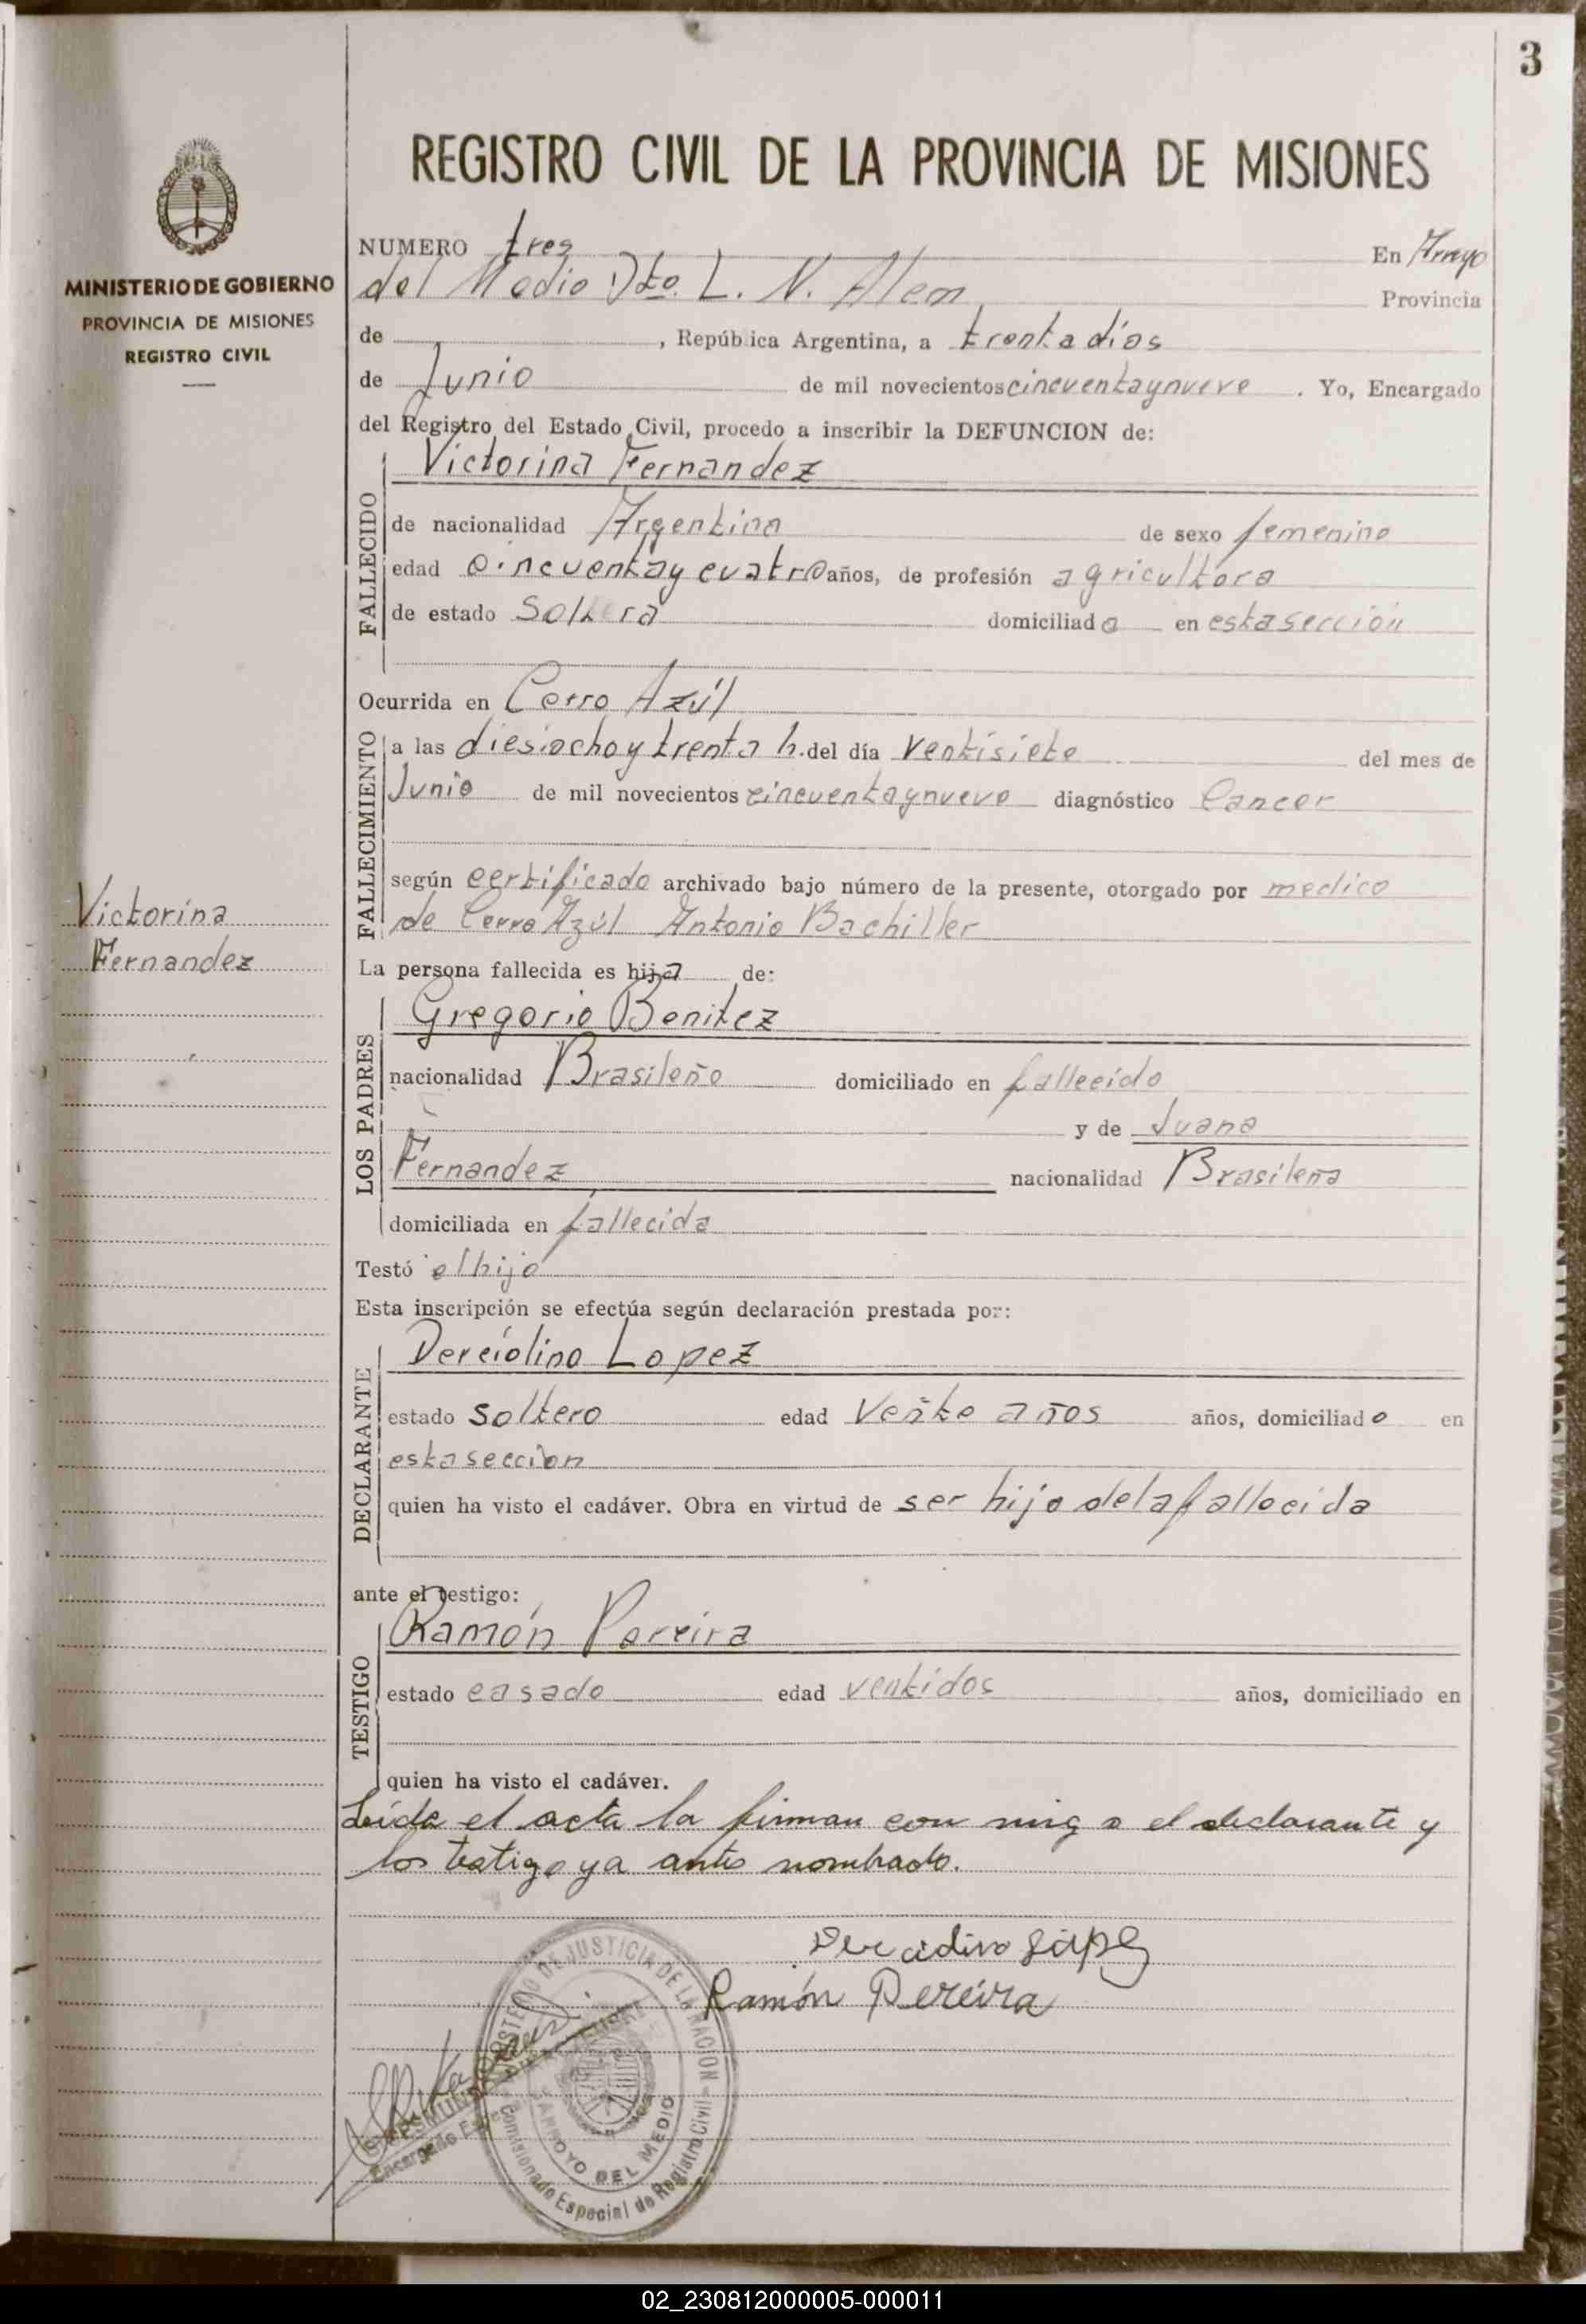 3
REGISTRO CIVIL DE LA PROVINCIA DE MISIONES
MINISTERIO DE GOBIERNO
PROVINCIA DE MISIONES
REGISTRO CIVIL
NUMERO tres En Arroyo
del Medio Dto. L. N. Alem Provincia
de , República Argentina, a trenta días
de Junio de mil novecientos cincuentaynueve . Yo, Encargado
del Registro del Estado Civil, procedo a inscribir la DEFUNCION de:
FALLECIDO
Victorina Fernandez
de nacionalidad Argentina de sexo femenino
edad cincuentay cuatro años, de profesión agricultora
de estado Soltera domiciliada en esta sección
Ocurrida en Cerro Azúl
FALLECIMIENTO
a las diesiocho y trenta h. del día ventisiete del mes de
Junio de mil novecientos cincuentaynueve diagnóstico Cancer
según certificado archivado bajo número de la presente, otorgado por medico
de Cerro Azúl Antonio Bachiller
Victorina
Fernandez
La persona fallecida es hija de:
LOS PADRES
Gregorio Benitez
nacionalidad Brasileño domiciliado en fallecido
y de Juana
Fernandez nacionalidad Brasileña
domiciliada en fallecida
Testó el hijo
Esta inscripción se efectúa según declaración prestada por:
DECLARANTE
Derciolino Lopez
estado soltero edad Veñte años años, domiciliado en
esta seccion
quien ha visto el cadáver. Obra en virtud de ser hijo de la fallecida
ante el testigo:
TESTIGO
Ramón Pereira
estado casado edad ventidos años, domiciliado en
quien ha visto el cadáver.
Leída el acta la firman con mig o el declarante y
los testigo ya antes nombrado.
Ramón Pereira
DE JUSTICIA DE LA NACION
ARROYO DEL MEDIO
Comisionado Especial de Registro Civil
Encargado
02_230812000005-000011